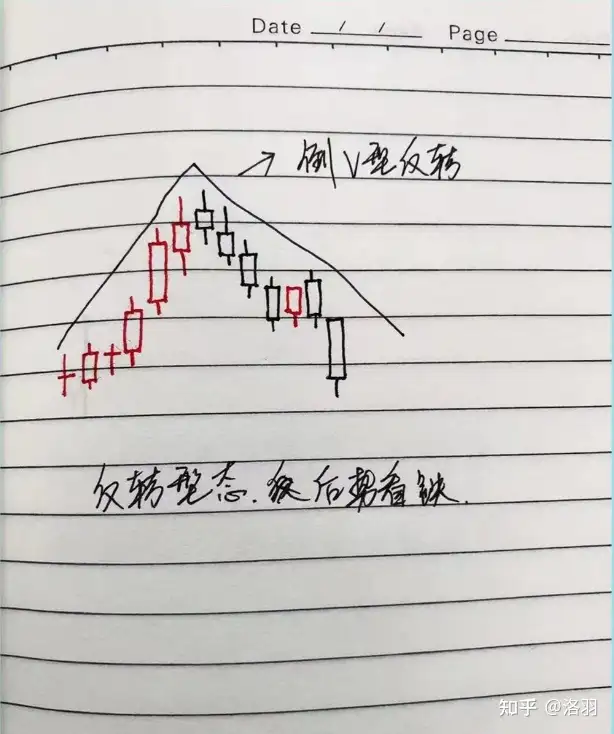 Date / / Page
倒V型反转
反转型态.后期看跌.
知乎 @洛羽